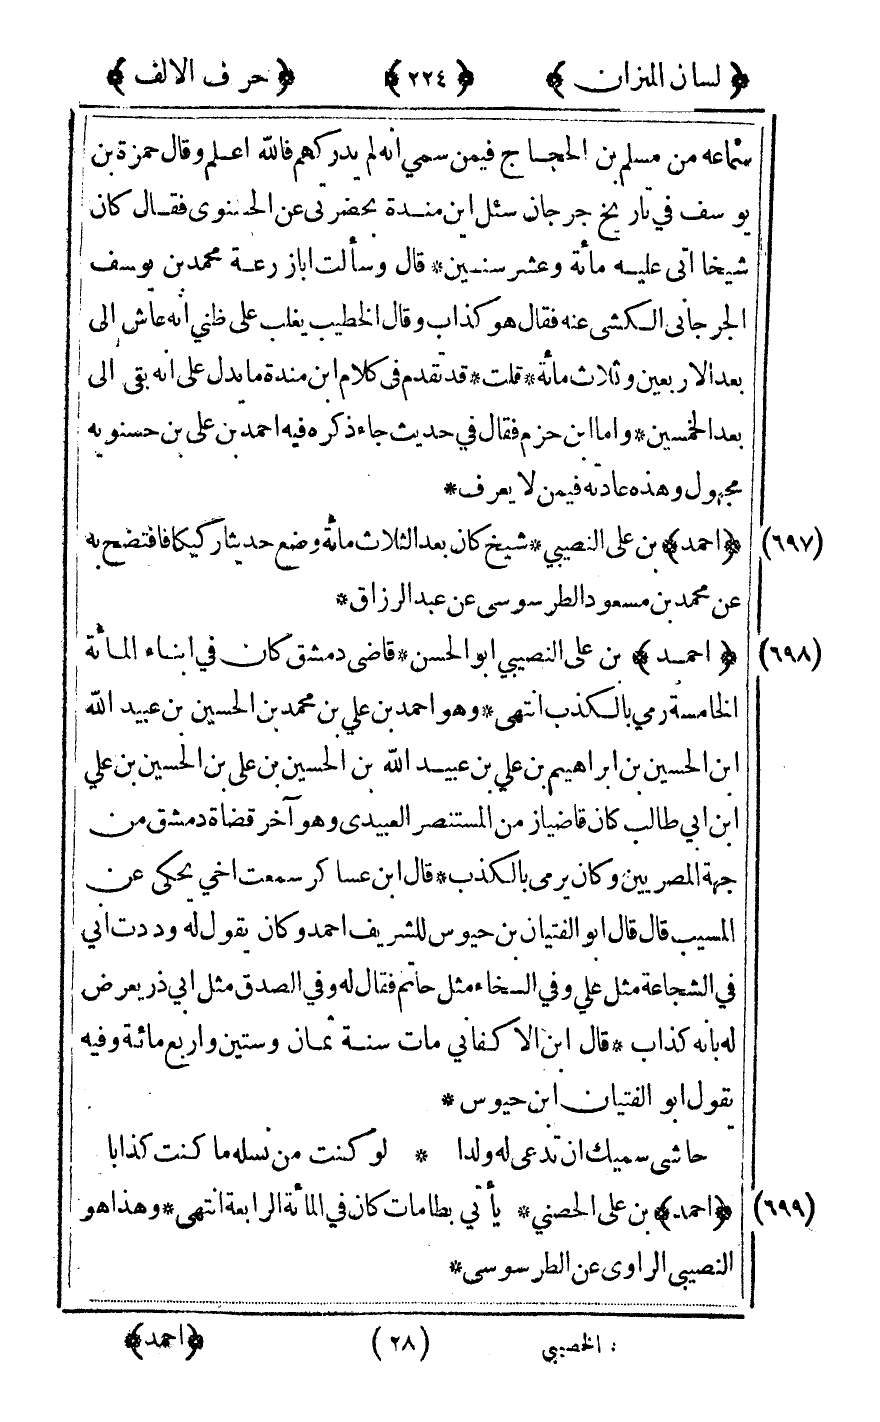 ﴿ لسان الميزان ﴾ ﴿ ٢٢٤ ﴾ ﴿ حرف الالف ﴾
سماعه من مسلم بن الحجاج فيمن سمي انه لم يدركهم فالله اعلم وقال حمزة بن
يوسف في تاريخ جرجان سئل ابن مندة بحضرتى عن الحسنوى فقال كان
شيخا اتى عليه مائة وعشر سنين * قال وسألت ابازرعة محمد بن يوسف
الجرجانى الكشى عنه فقال هو كذاب وقال الخطيب يغلب على ظني انه عاش الى
بعد الاربعين وثلاث مائة * قلت * قد تقدم فى كلام ابن مندة ما يدل على انه بقى الى
بعد الخمسين * واما ابن حزم فقال في حديث جاء ذكره فيه احمد بن على بن حسنويه
مجهول وهذه عادته فيمن لا يعرف *
(٦٩٧) ﴿ احمد ﴾ بن على النصيبي * شيخ كان بعد الثلاث مائة وضع حديثا ركيكا فافتضح به
عن محمد بن مسعود الطرسوسى عن عبد الرزاق *
(٦٩٨) ﴿ احمد ﴾ بن على النصيبي ابو الحسن * قاضى دمشق كان في ابناء المائة
الخامسة رمي بالكذب انتهى * وهو احمد بن علي بن محمد بن الحسين بن عبيد الله
ابن الحسين بن ابراهيم بن علي بن عبيد الله بن الحسين بن على بن الحسين بن علي
ابن ابي طالب كان قاضيا ز من المستنصر العبيدى وهو آخر قضاة دمشق من
جهة المصريين وكان يرمى بالكذب * قال ابن عساكر سمعت اخي يحكى عن
المسيب قال قال ابو الفتيان بن حيوس للشريف احمد وكان يقول له وددت اني
في الشجاعة مثل علي وفي السخاء مثل حاتم فقال له وفي الصدق مثل ابي ذر يعرض
له بأنه كذاب * قال ابن الاكفاني مات سنة ثمان وستين واربع مائة وفيه
يقول ابو الفتيان ابن حيوس *
حاشى سميك ان تدعى له ولدا * لو كنت من نسله ما كنت كذابا
(٦٩٩) ﴿ احمد ﴾ بن على الحصني * يأتي بطامات كان في المائة الرابعة انتهى * وهذا هو
النصيبى الراوى عن الطرسوسى *
: الخصيبي (٢٨) ﴿ احمد ﴾